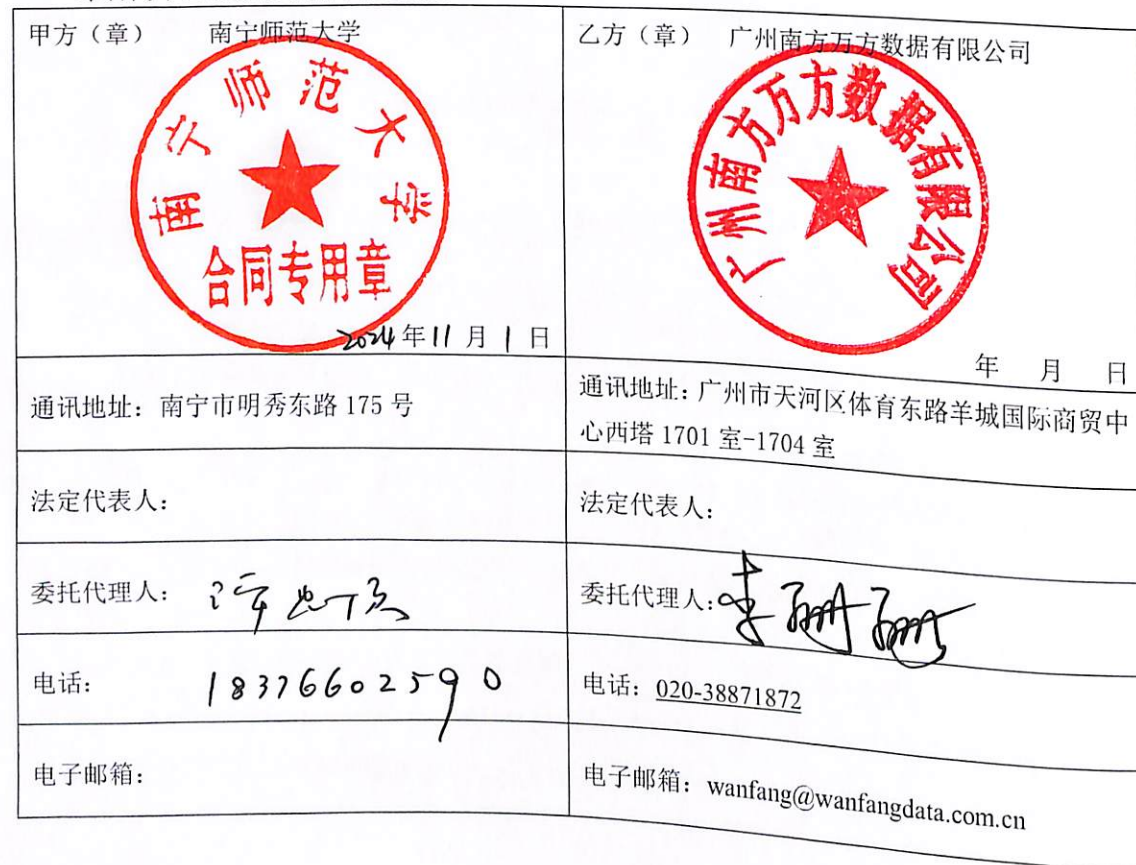 甲方（章） 南宁师范大学
南宁师范大学
合同专用章
2024年11月1日
乙方（章） 广州南方万方数据有限公司
广州南方万方数据有限公司
年 月 日
通讯地址：南宁市明秀东路 175 号
通讯地址：广州市天河区体育东路羊城国际商贸中
心西塔 1701 室-1704 室
法定代表人：
法定代表人：
委托代理人：
委托代理人：李珊珊
电话：18376602590
电话：020-38871872
电子邮箱：
电子邮箱：wanfang@wanfangdata.com.cn